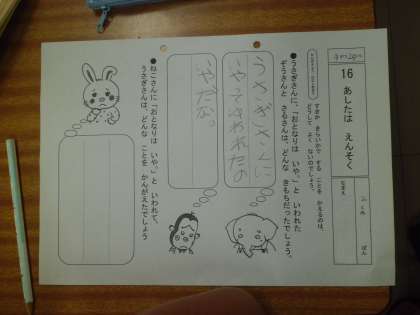 16 あしたは えんそく
なまえ
くみ
ばん
すきか きらいかで する ことを かえるのは、
どうして よく ないのでしょう。
●うさぎさんに、「おとなりは いや。」と いわれた
ぞうさんと さるさんは、どんな きもちだったでしょう。
うさぎさんに
いやだな。
●ねこさんに、「おとなりは いや。」と いわれて、
うさぎさんは、どんな ことを かんがえたでしょう